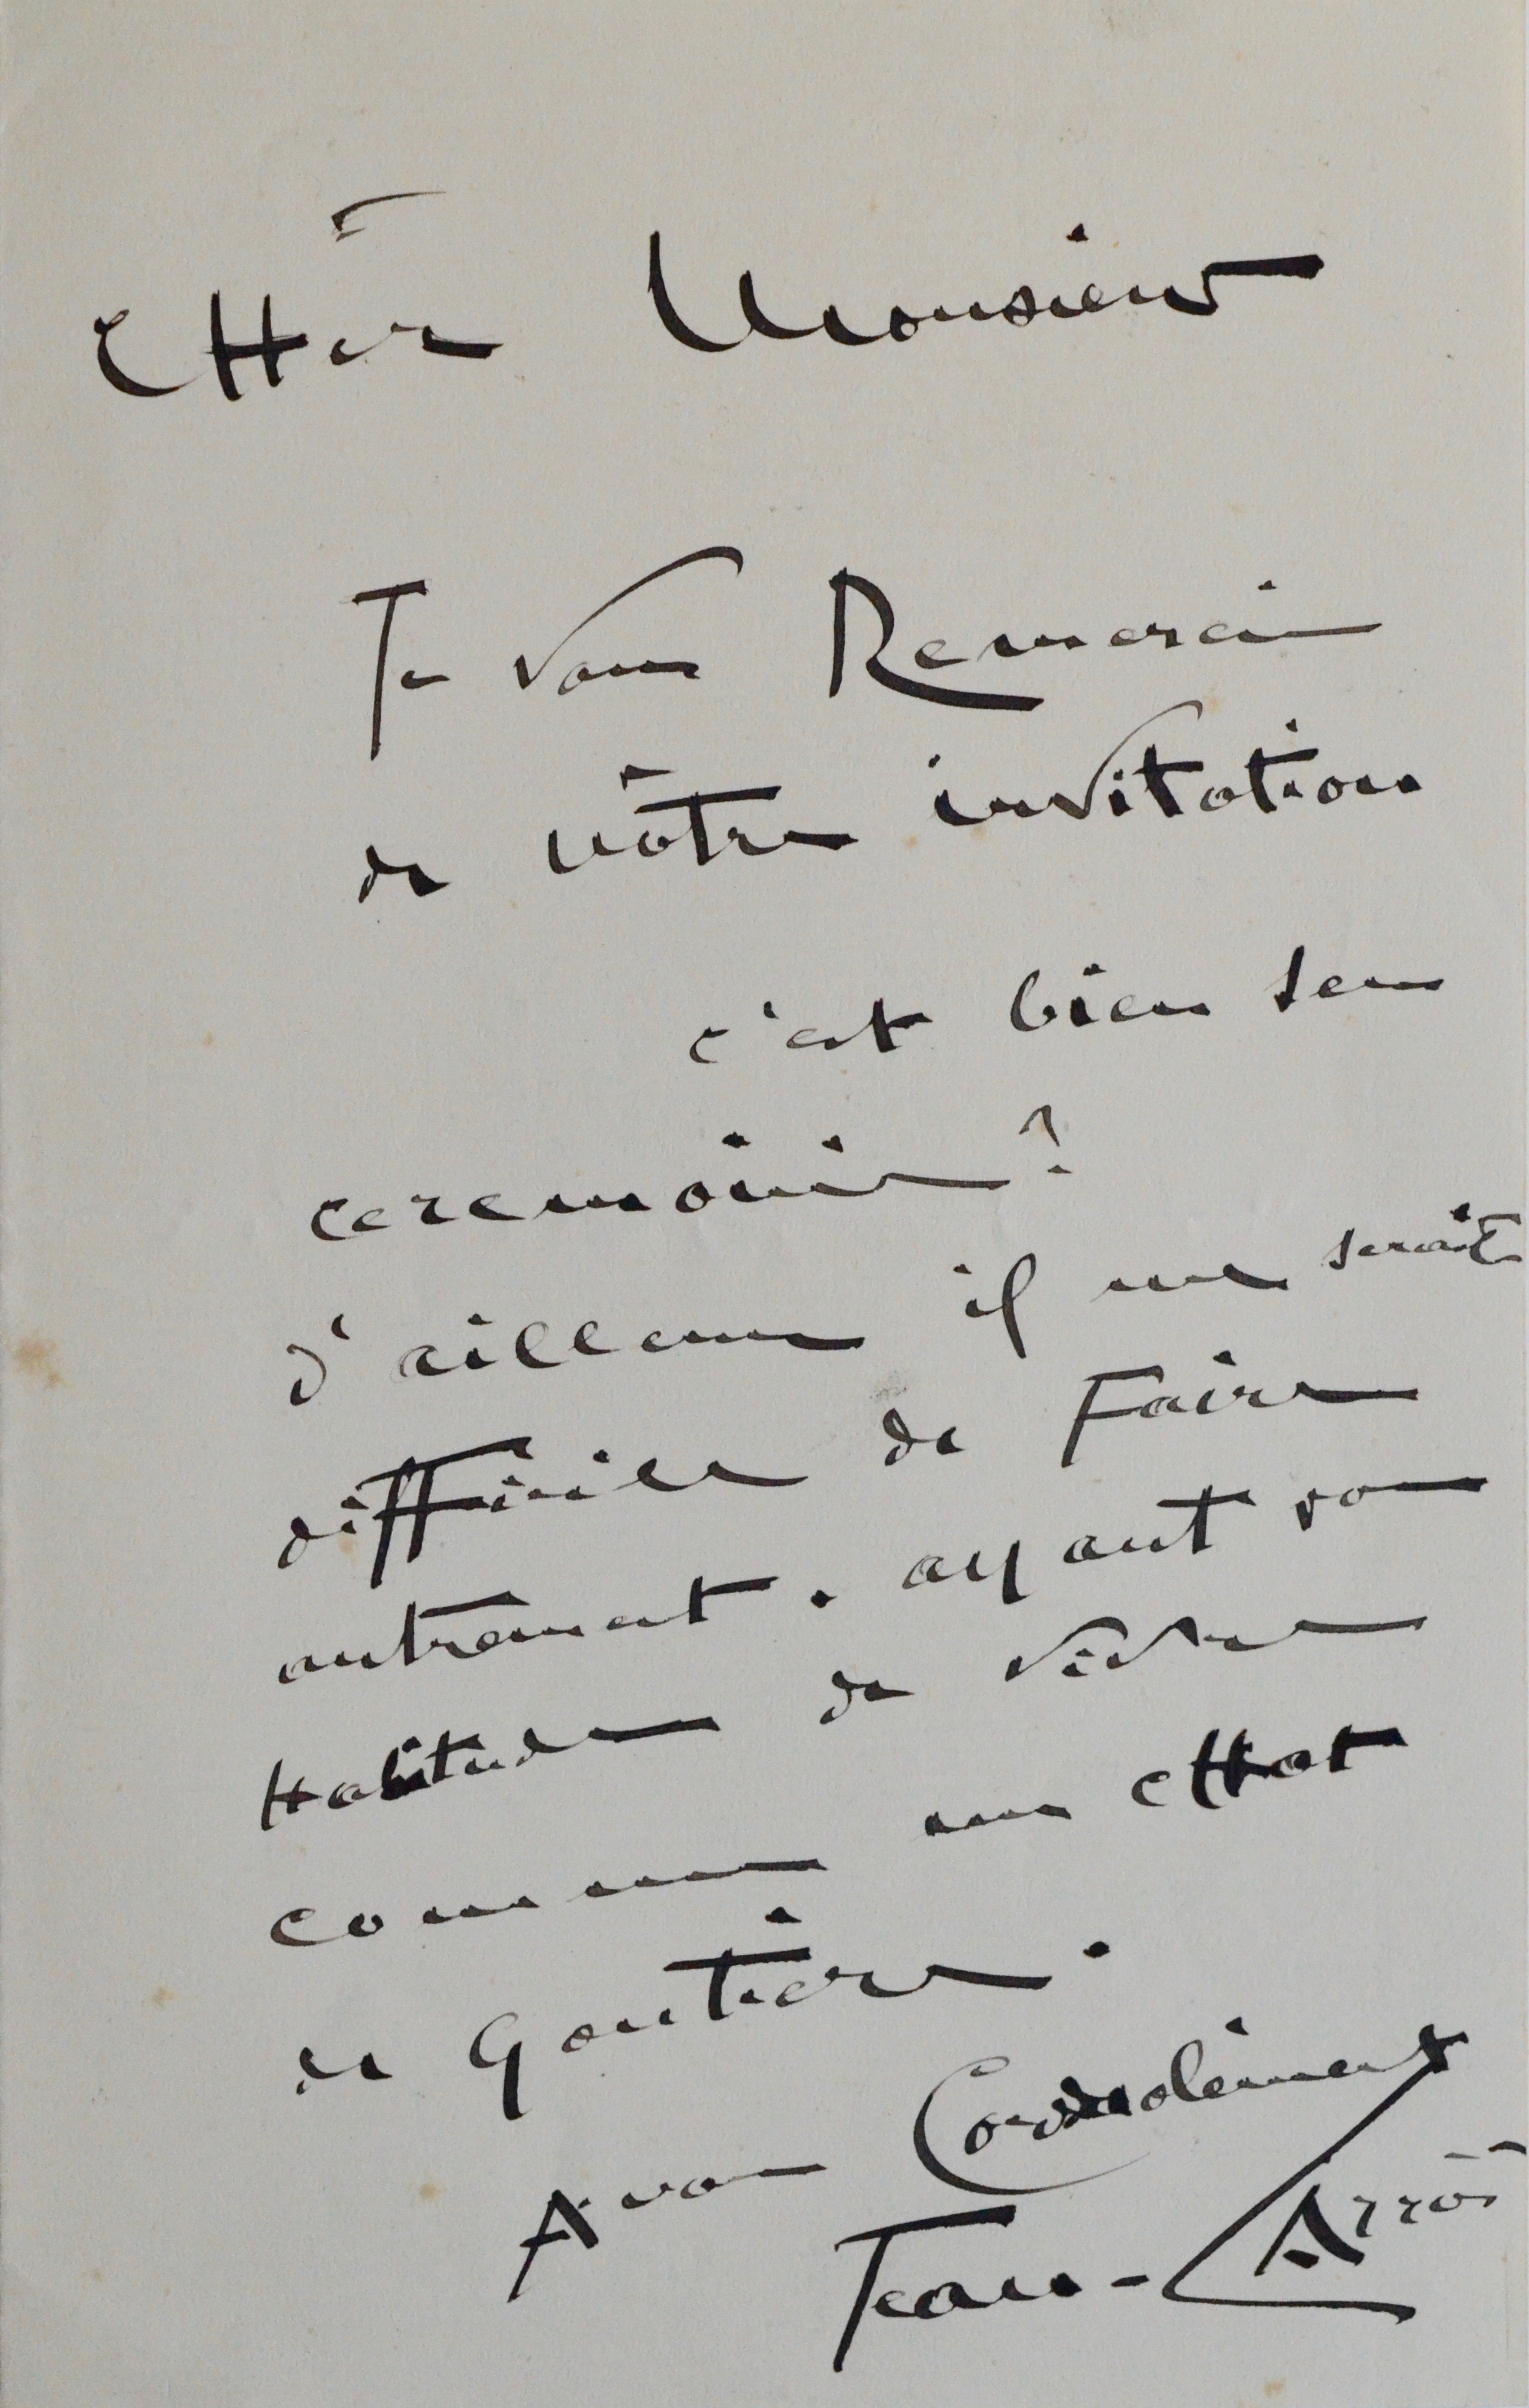 CHer Monsieur
Je vous Remercie
de vôtre invitation
c'est bien sans
ceremonie?
d'ailleurs il me serait
difficile de Faire
autrement. ayant
Habitude de vivre
comme un cHat
de Goutière.
A vous Cordialement
Jean-